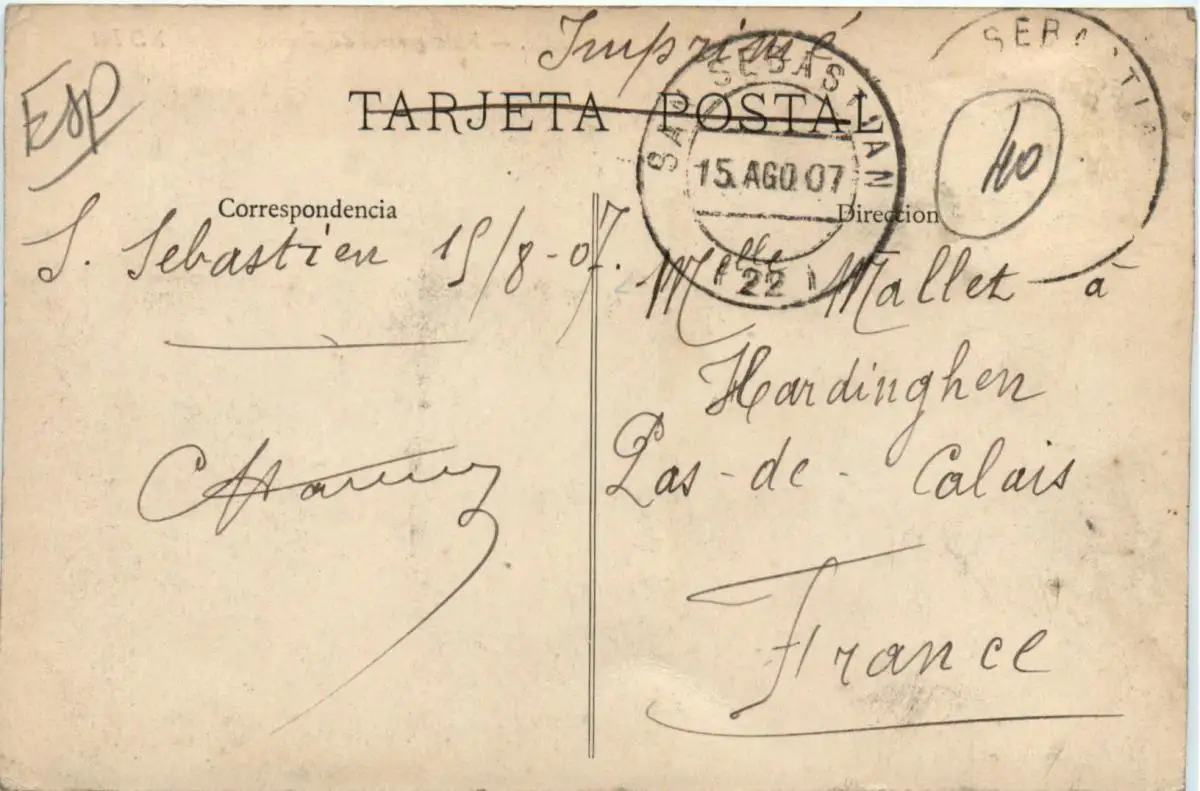 Imprimé
Esp
TARJETA POSTAL
SAN SEBASTIAN
15.AGO.07
22
SEBASTIA
40
Correspondencia
Direccion
S. Sebastien 15/8-07.
Mlle Mallet à
Hardinghen
Pas-de-Calais
France